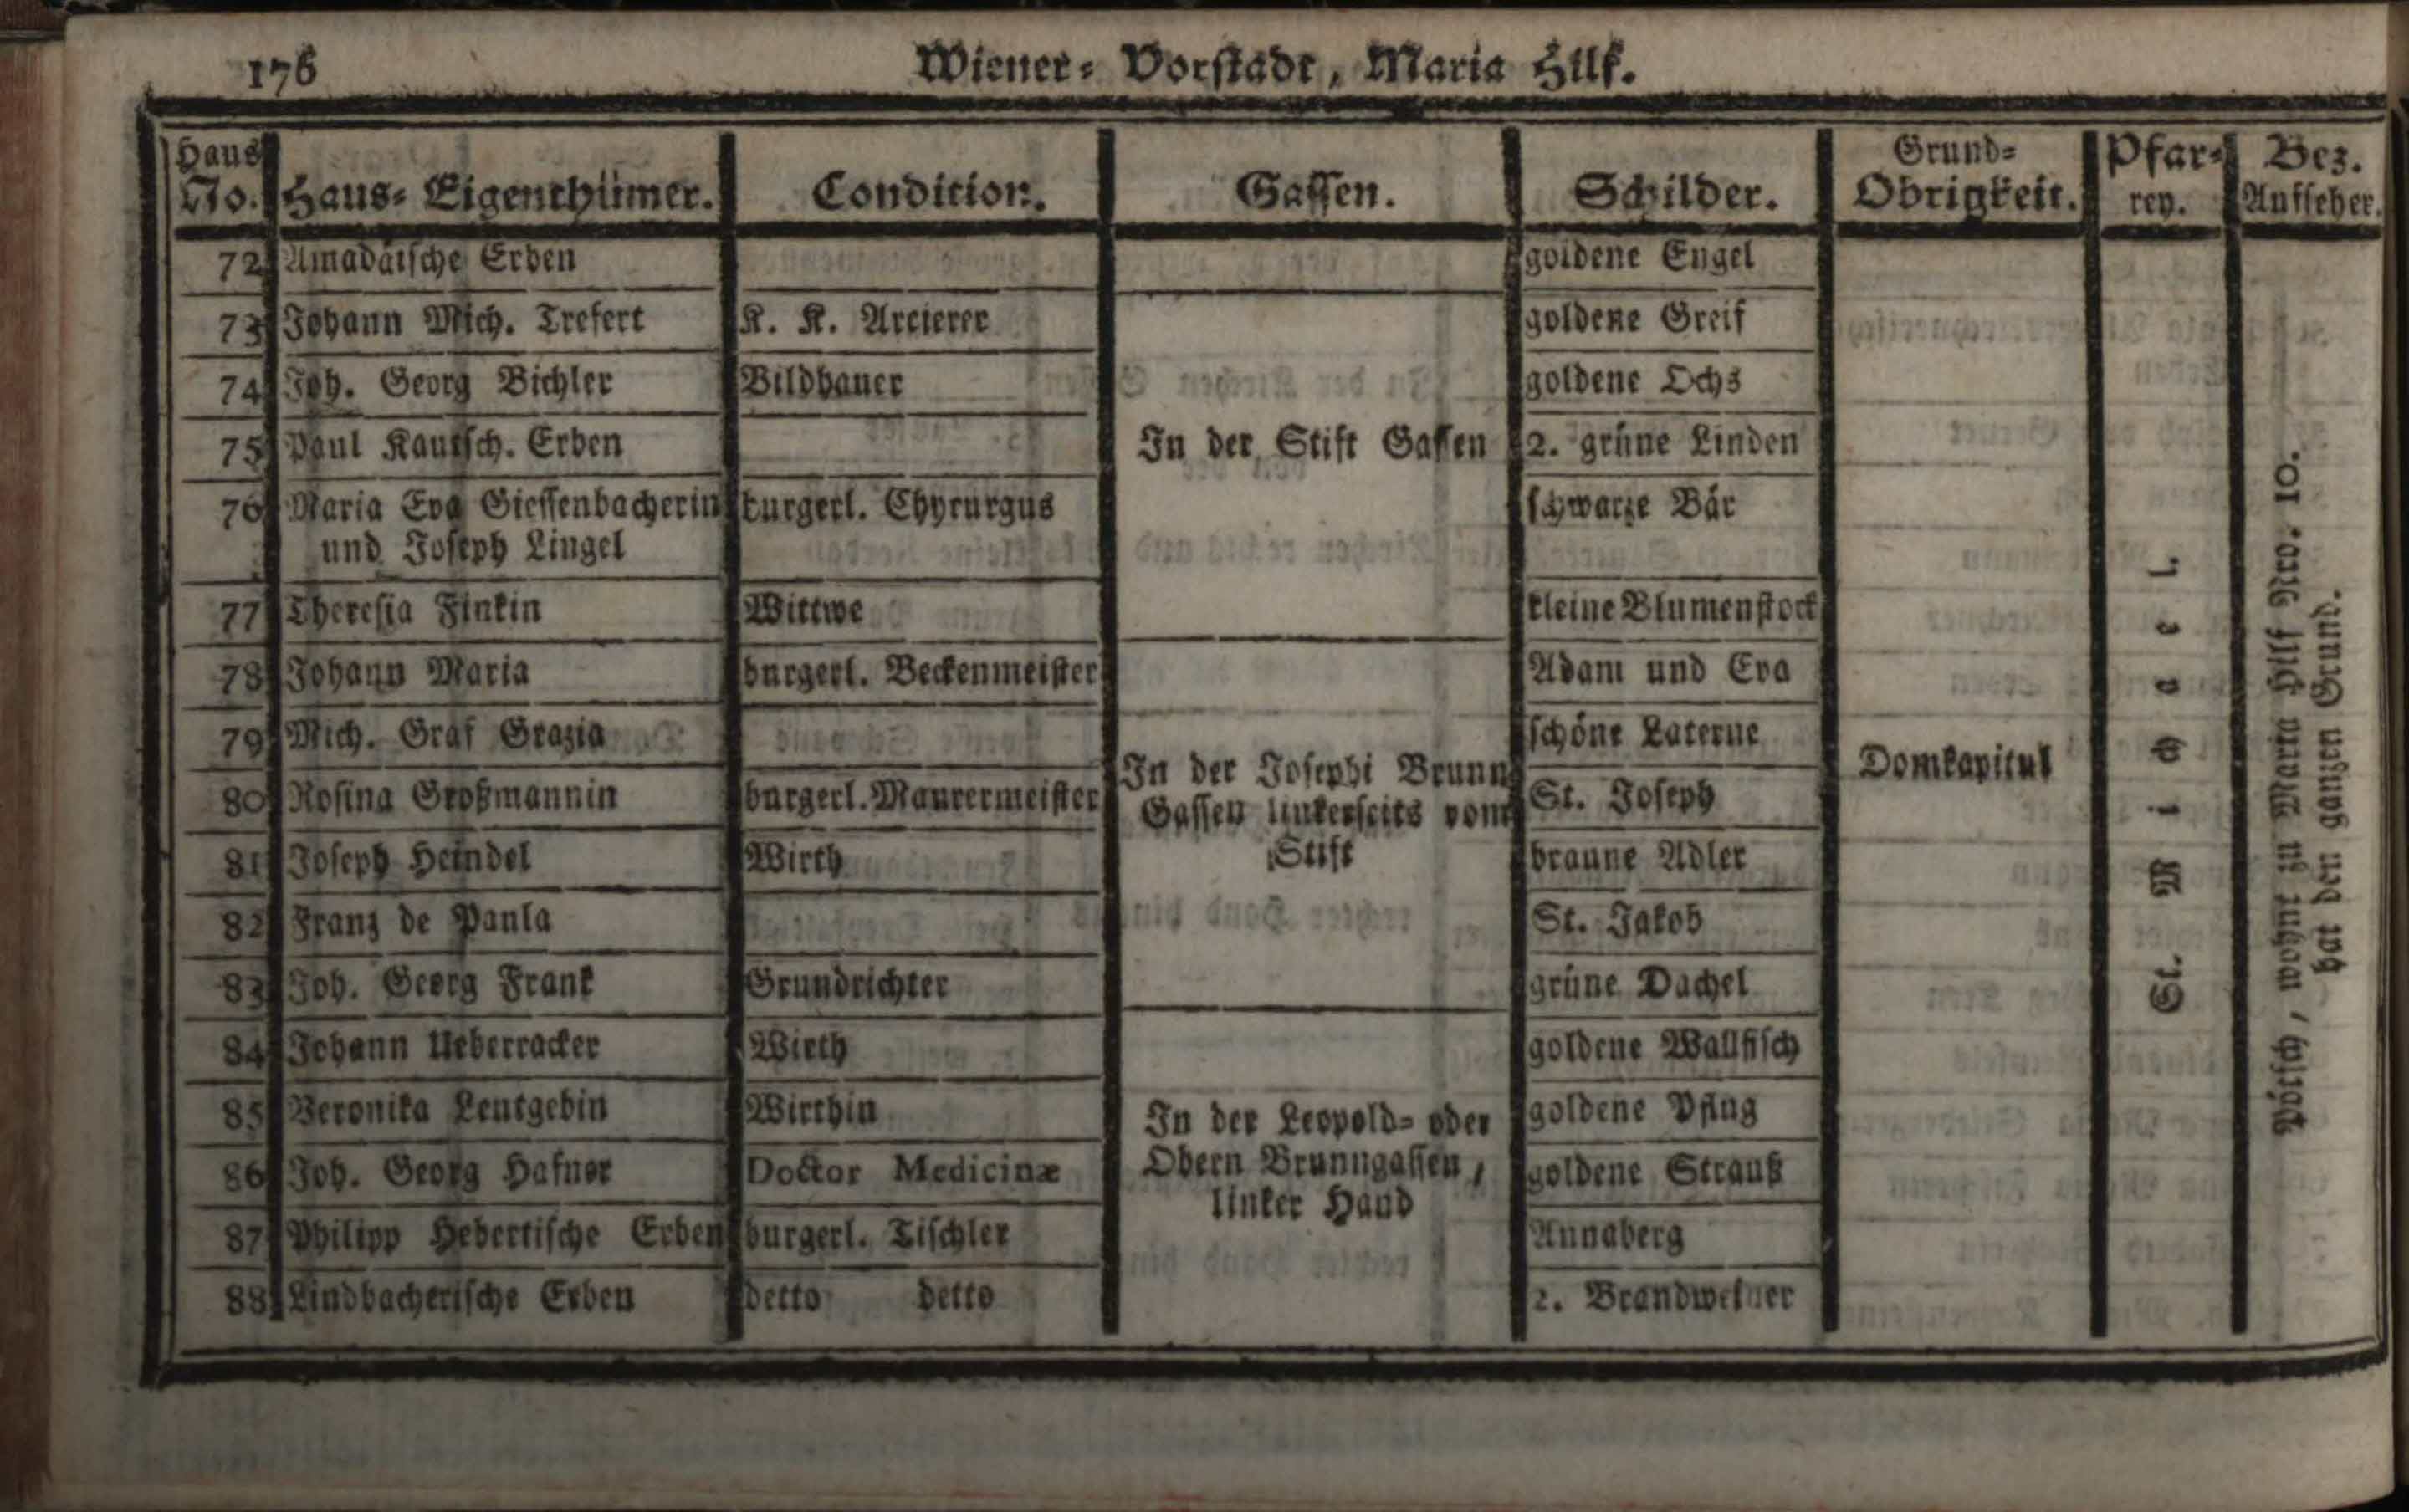 176
Wiener- Vorstadt, Maria Hilf.
Haus No. Haus- Eigenthümer. Condition. Gassen. Schilder. Grund- Obrigkeit. Pfar- rey. Bez. Aufseher.
72 Amadäische Erben goldene Engel
73 Johann Mich. Trefert K. K. Arcierer goldene Greif
74 Joh. Georg Bichler Bildhauer goldene Ochs
75 Paul Kautsch. Erben In der Stift Gassen 2. grüne Linden
76 Maria Eva Giessenbacherin burgerl. Chyrurgus schwarze Bär
und Joseph Lingel
77 Theresia Finkin Wittwe kleine Blumenstock
78 Johann Maria burgerl. Beckenmeister Adam und Eva
79 Mich. Graf Grazia schöne Laterne
In der Josephi Brunn Domkapitul
80 Rosina Großmannin burgerl. Maurermeister Gassen linkerseits vom St. Joseph
81 Joseph Heindel Wirth Stift braune Adler
82 Franz de Paula St. Jakob
83 Joh. Georg Frank Grundrichter grüne Dachel
84 Johann Ueberracker Wirth goldene Wallfisch
85 Veronika Leutgebin Wirthin In der Leopold- oder goldene Pflug
86 Joh. Georg Hafner Doctor Medicinæ Obern Brunngassen, goldene Strauß
linker Hand
87 Philipp Hebertische Erben burgerl. Tischler Annaberg
88 Lindbacherische Erben detto detto 2. Brandweiner
St. Michael.
Pötsch, wohnt zu Maria Hilf Nro. 10.
hat den ganzen Grund.